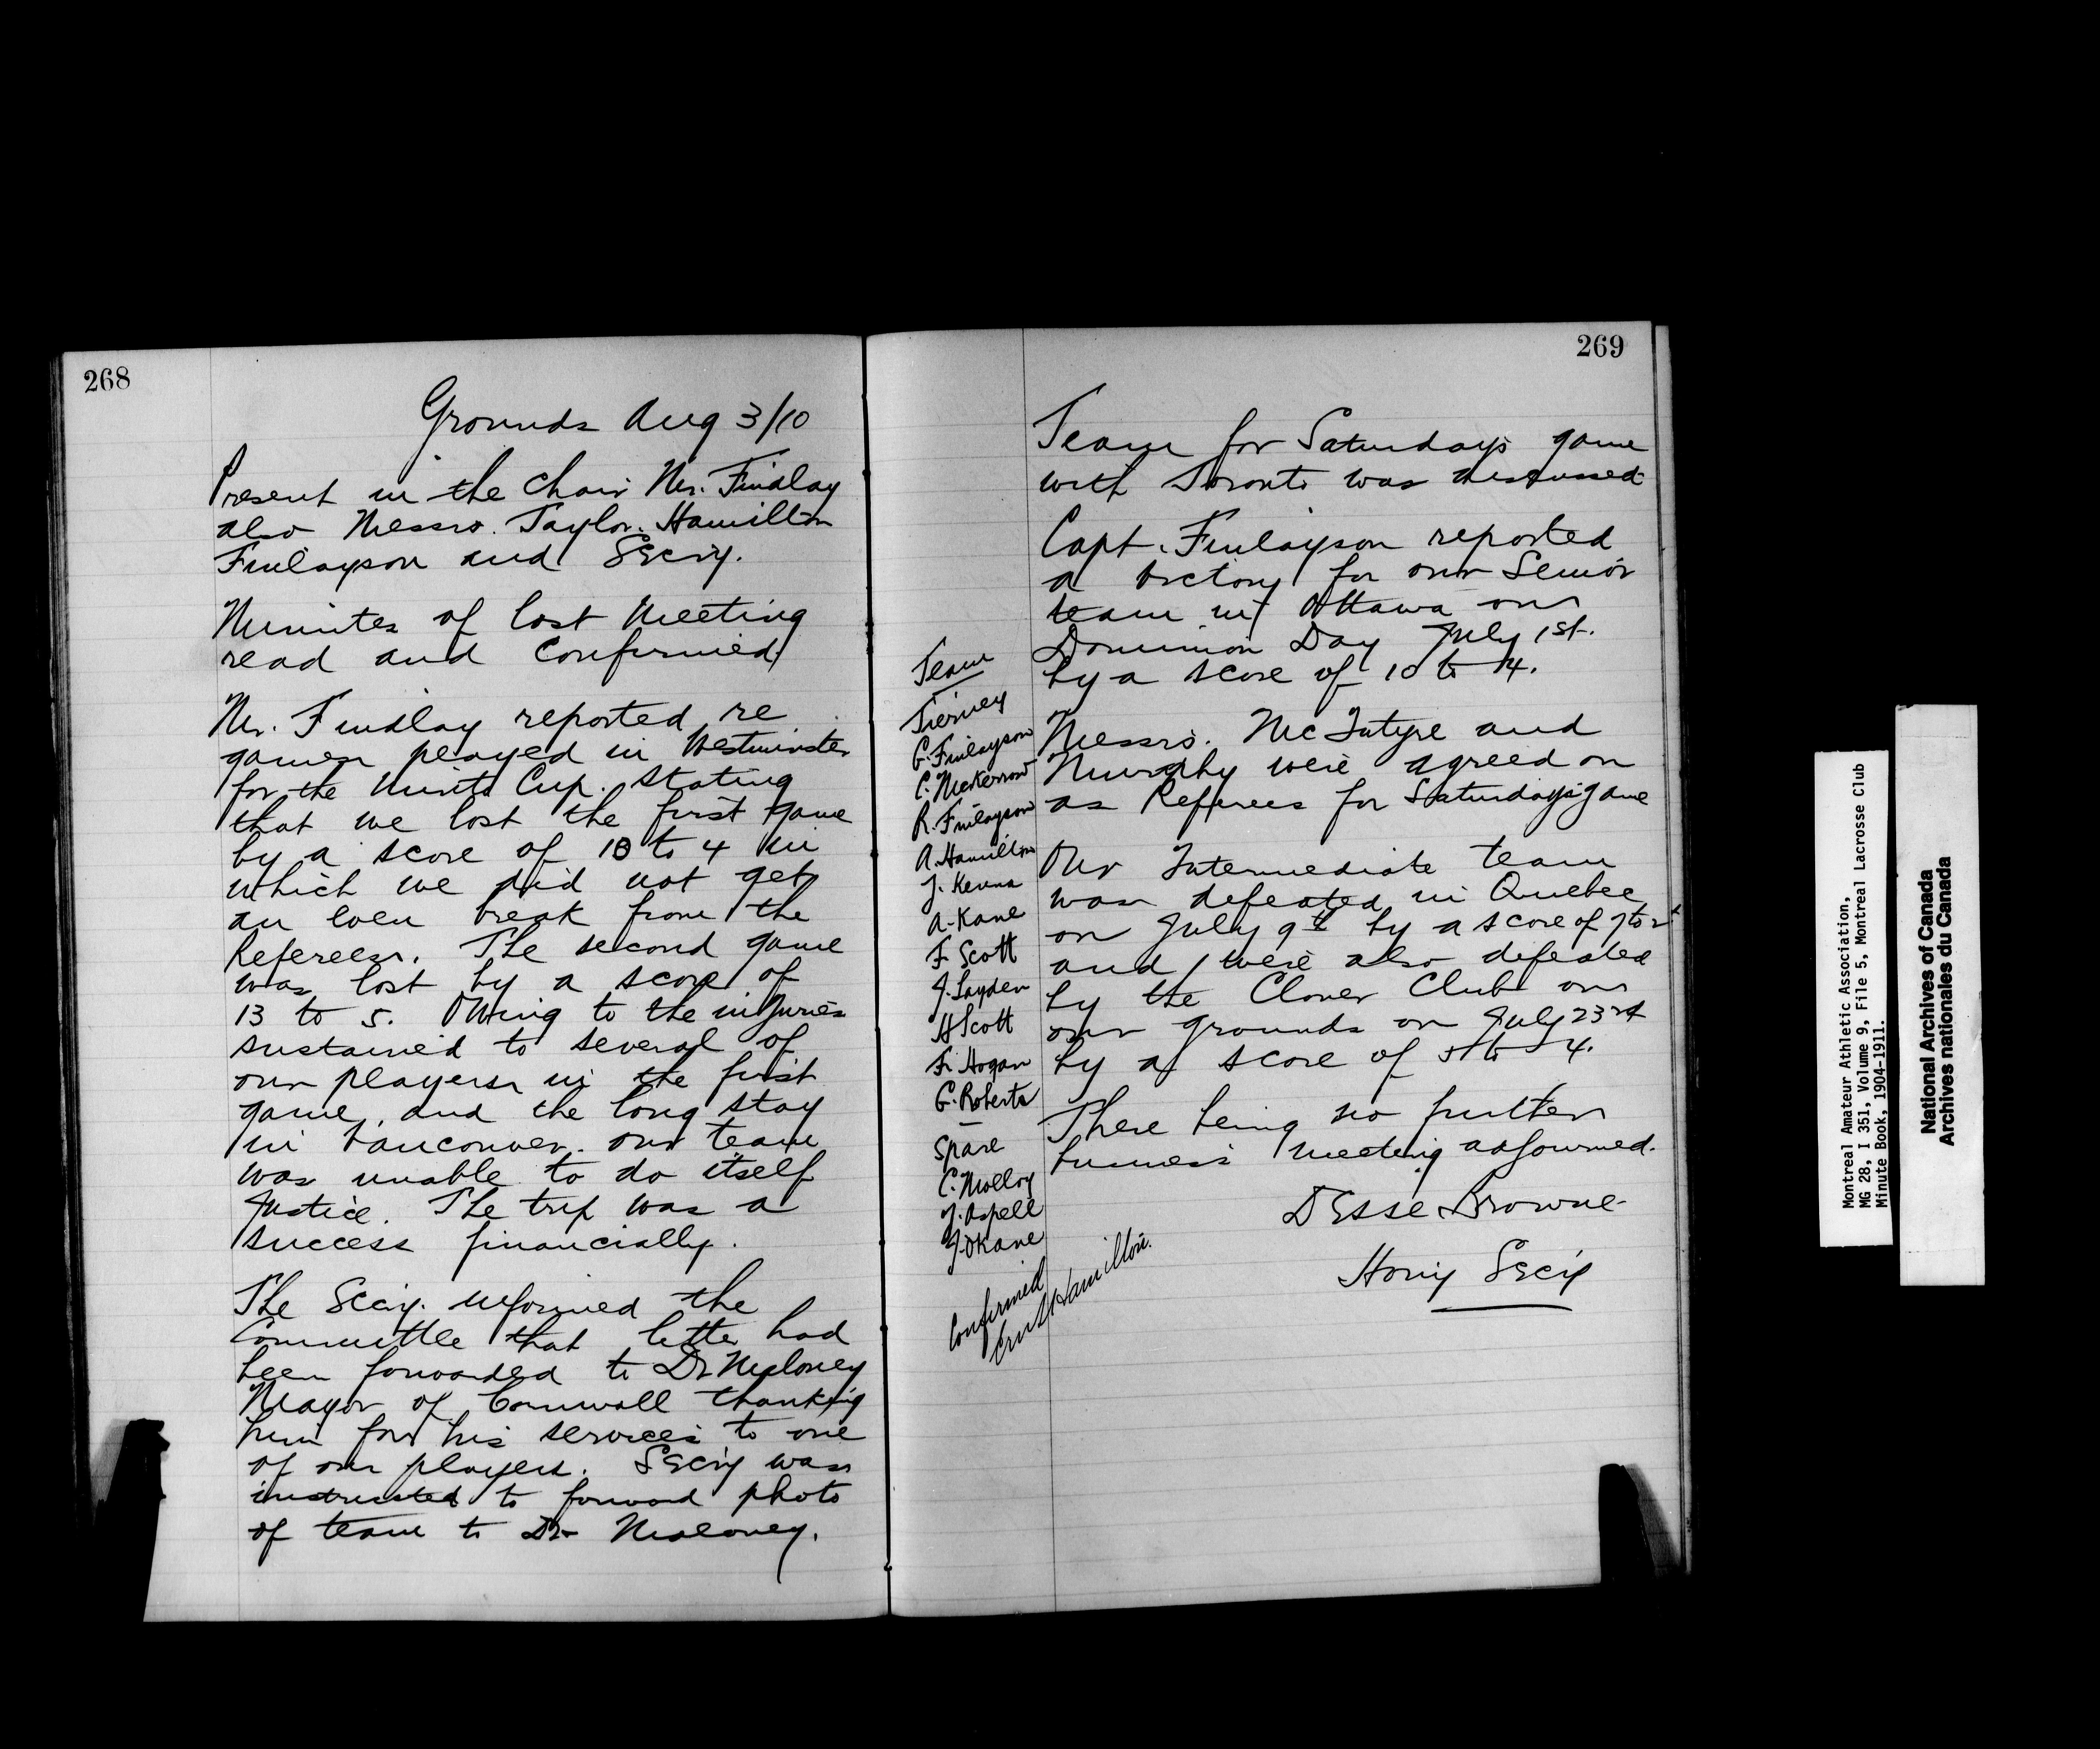 268
Grounds Aug 3/10
Present in the chair Mr. Findlay
also Messrs. Taylor. Hamilton
Finlayson and Secy.
Minutes of last Meeting
read and Confirmed
Mr. Findlay reported re
games played in Westminster
for the Minto Cup. Stating
that we lost the first game
by a score of 10 to 4 in
which we did not get
an even break from the
Referees. The second game
was lost by a score of
13 to 5. Owing to the injuries
sustained to several of
our players in the first
game, and the long stay
in Vancouver. our team
was unable to do itself
Justice. The trip was a
success financially.
The Secy. informed the
Committee that letter had
been forwarded to Dr Maloney
Mayor of Cornwall thanking
him for his services to one
of our players. Secy was
instructed to forward photo
of team to Dr Maloney.
269
Team for Saturdays game
with Toronto was discussed
Capt. Finlayson reported
a victory for our Senior
team in Ottawa on
Dominion Day July 1st.
by a score of 10 to 4.
Messrs. McIntyre and
Murphy were agreed on
as Referees for Saturdays game
Our Intermediate team
was defeated in Quebec
on July 9th by a score of 7 to
and were also defeated
by the Clover Club on
our grounds on July 23rd
by a score of 5 to 4.
There being no further
business meeting adjourned.
Browne
Hony Secy
Team
Tierney
G. Finlayson
C. McKerrow
R. Finlayson
A. Hamilton
J. Kenna
A. Kane
F. Scott
J. Layden
H Scott
F. Hogan
G. Roberts
Spare
C. Molloy
J. Aspell
J. OKane
Confirmed
Hamilton.
Montreal Amateur Athletic Association,
MG 28, I 351, Volume 9, File 5, Montreal Lacrosse Club
Minute Book, 1904-1911.
National Archives of Canada
Archives nationales du Canada